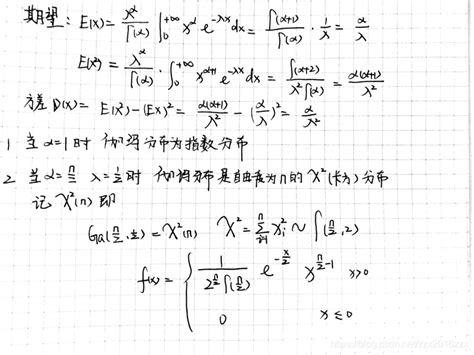 期望: E(X) = λ^α/Γ(α) ∫_0^{+∞} x^α e^{-λx} dx = Γ(α+1)/Γ(α) · 1/λ = α/λ
E(X²) = λ^α/Γ(α) · ∫_0^{+∞} x^{α+1} e^{-λx} dx = Γ(α+2)/(λ²Γ(α)) = α(α+1)/λ²
方差 D(X) = E(X²) - (EX)² = α(α+1)/λ² - (α/λ)² = α/λ²
1 当 α=1 时 伽玛分布为指数分布
2. 当 α=n/2 λ=1/2 时 伽玛分布是自由度为n的 X²(卡方)分布
记 X²(n) 即
Ga(n/2, 1/2) = X²(n) X² = Σ_{i=1}^n x_i² ~ Γ(n/2, 2)
f(x) = { 1/(2^{n/2} Γ(n/2)) e^{-x/2} x^{n/2-1} x>0
0 x≤0